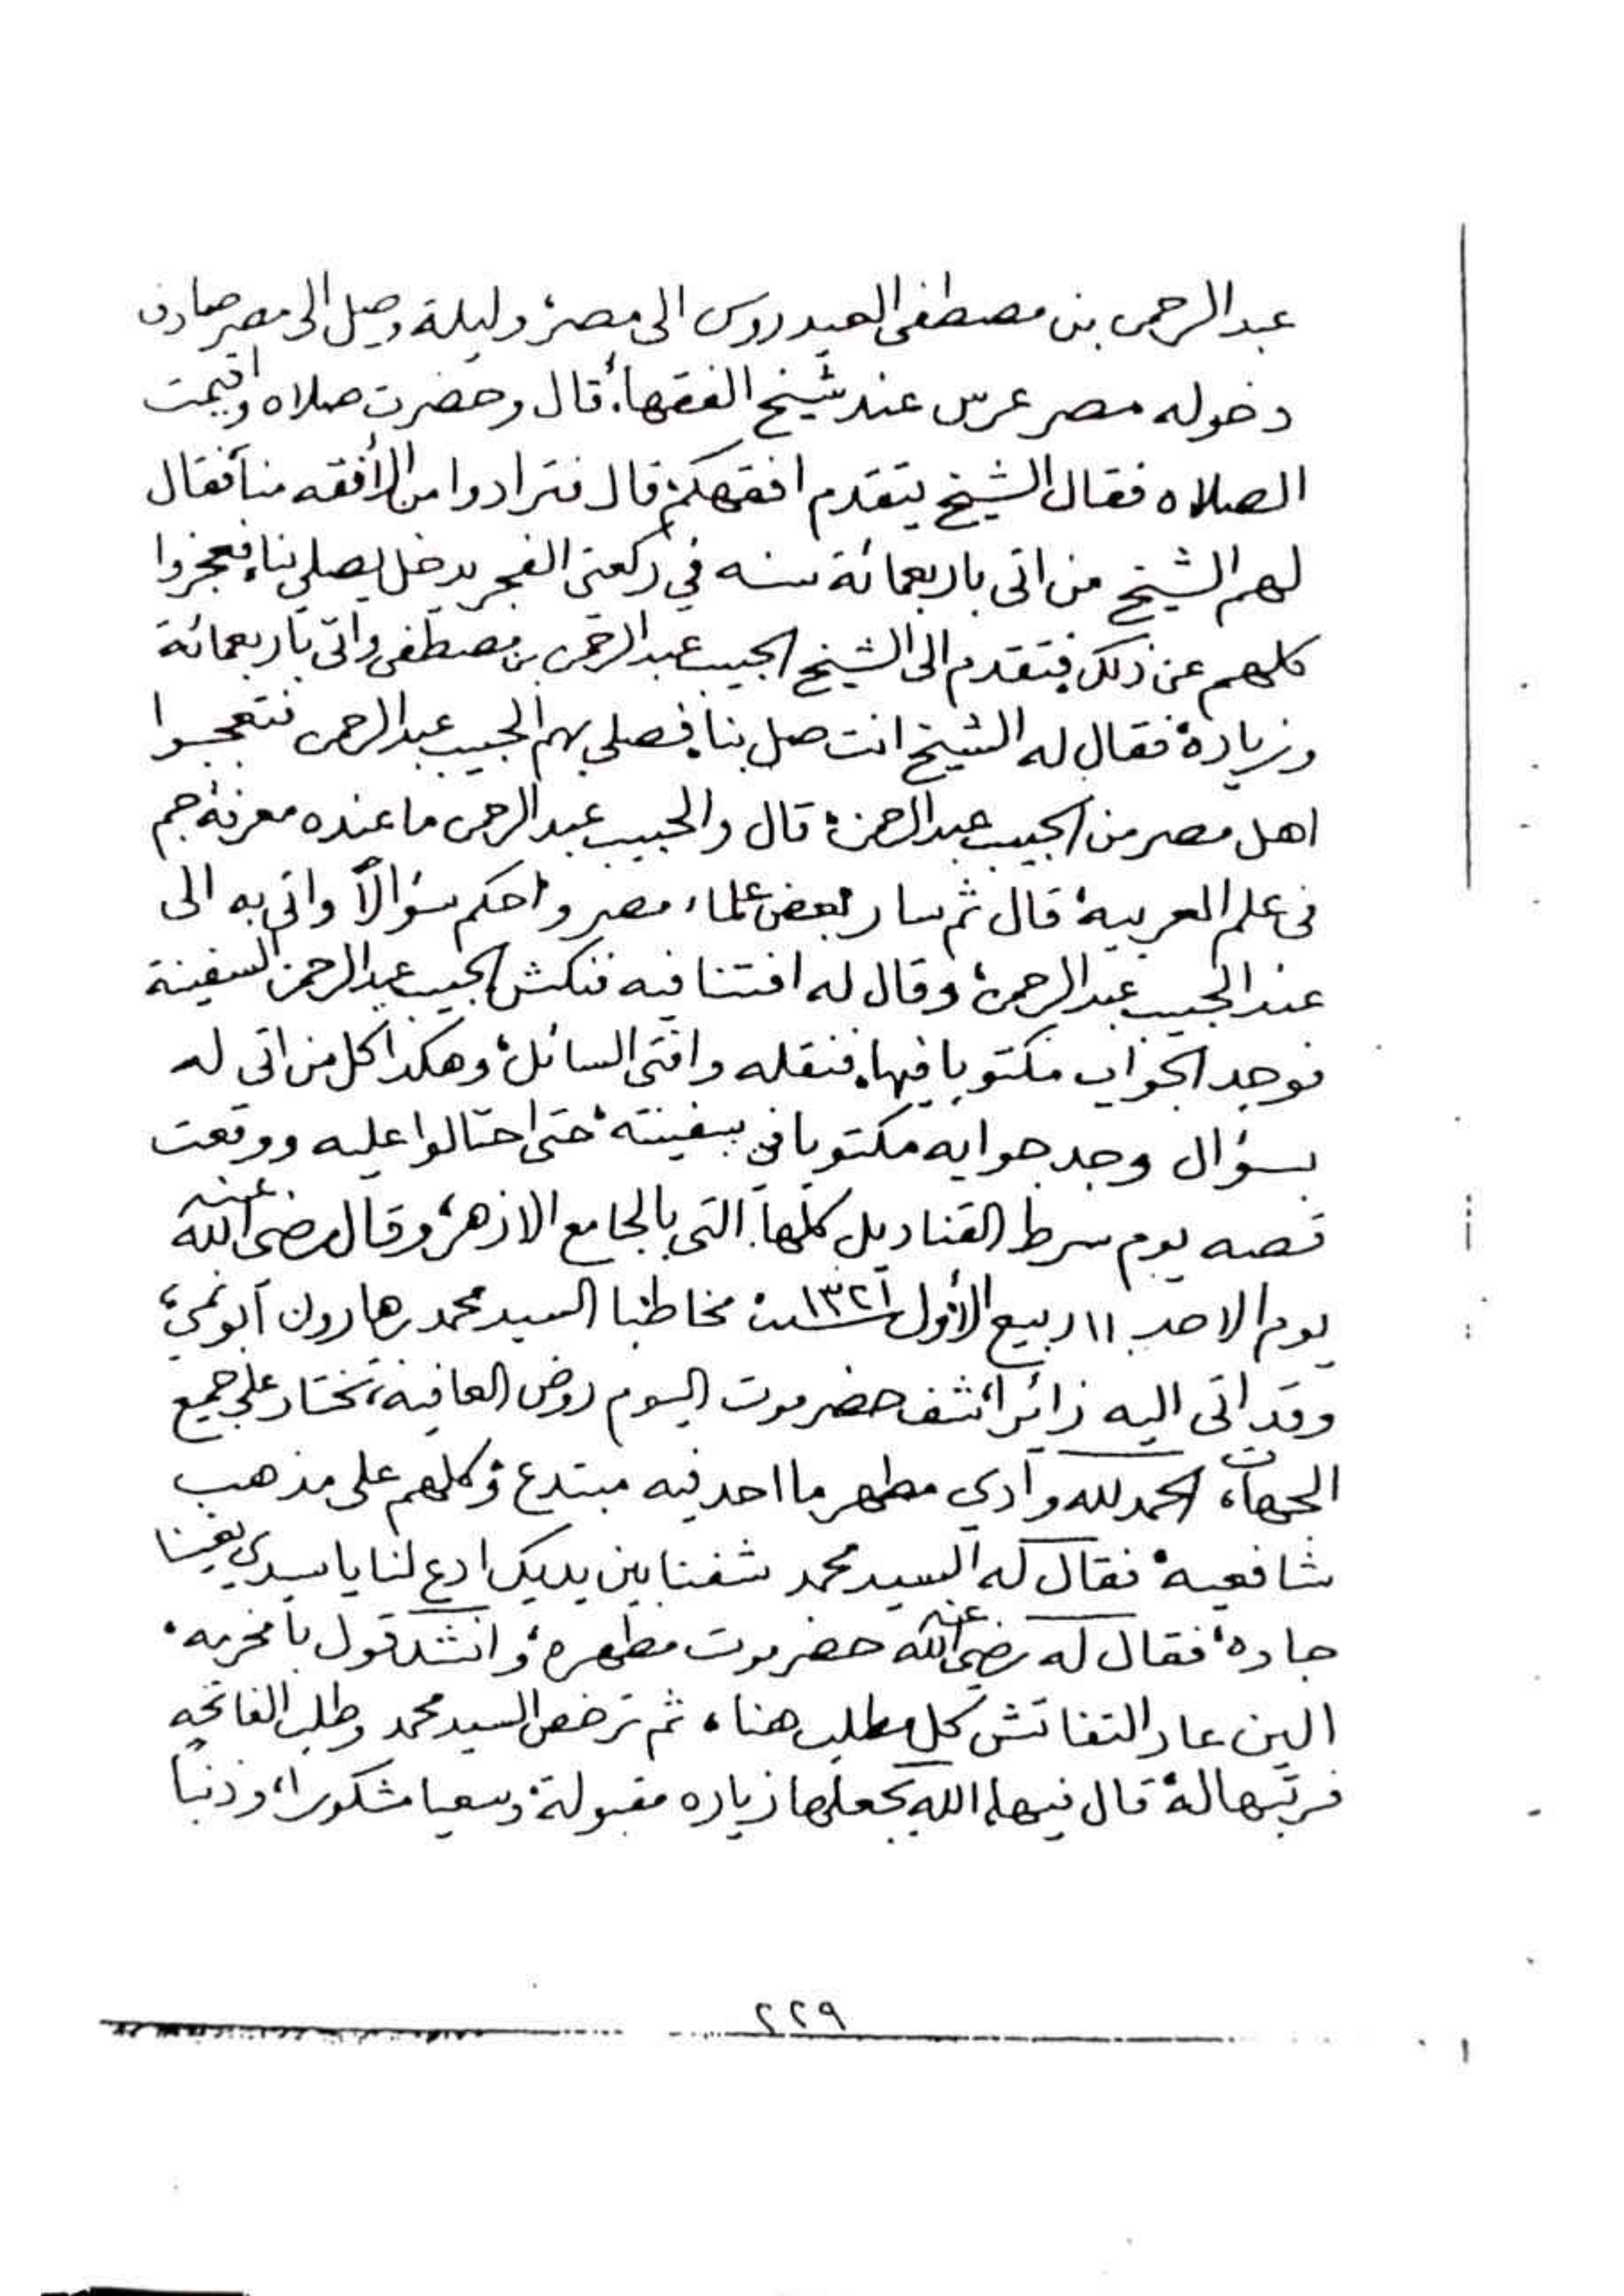 عبد الرحمن بن مصطفى العيدروس الى مصر، وليلة وصل الى مصر صادف
دخوله مصر عرس عند شيخ الفقهاء، قال وحضرت صلاه واقيمت
الصلاه فقال الشيخ يتقدم افقهكم، قال فترادوا من الأفقه منا، فقال
لهم الشيخ من اتى باربعمائة سنه في ركعتى الفجر يدخل يصلي بنا، فعجزوا
كلهم عن ذلك، فتقدم الى الشيخ الحبيب عبد الرحمن بن مصطفى واتى باربعمائة
وزيادة، فقال له الشيخ انت صل بنا، فصلى بهم الحبيب عبد الرحمن فتعجبوا
اهل مصر من الحبيب عبد الرحمن، قال والحبيب عبد الرحمن ما عنده معرفة جم
في علم العربية، قال ثم سار بعض علماء مصر واحكم سؤالاً واتى به الى
عند الحبيب عبد الرحمن، وقال له افتنا فيه فنكش الحبيب عبد الرحمن السفينة
فوجد الجواب مكتوبا فيها، فنقله وافتى السائل، وهكذا كل من اتى له
بسؤال وجد جوابه مكتوبا في سفينته، حتى احتالوا عليه ووقعت
قصه يوم سرط القناديل كلها التي بالجامع الازهر، وقال رضي الله عنه
يوم الاحد ١١ ربيع الأول سنة ١٣٢١ مخاطبا السيد محمد بن هارون ابو نمي،
وقد اتى اليه زائرا، شف حضرموت اليوم روض العافية، تختار على جميع
الجهات، الحمد لله وادي مطهر ما احد فيه مبتدع، وكلهم على مذهب
شافعيه، فقال له السيد محمد شفنا بين يديك ادع لنا يا سيدي بغينا
جاده، فقال له رضي الله عنه حضرموت مطهره، وانشد قول بامخرمه،
الين عاد التفاتش كل مطلب هنا، ثم ترخص السيد محمد وطلب الفاتحه
فرتبها له، قال فيها، الله يجعلها زياره مقبولة، وسعيا مشكورا، وذنبا
٢٢٩